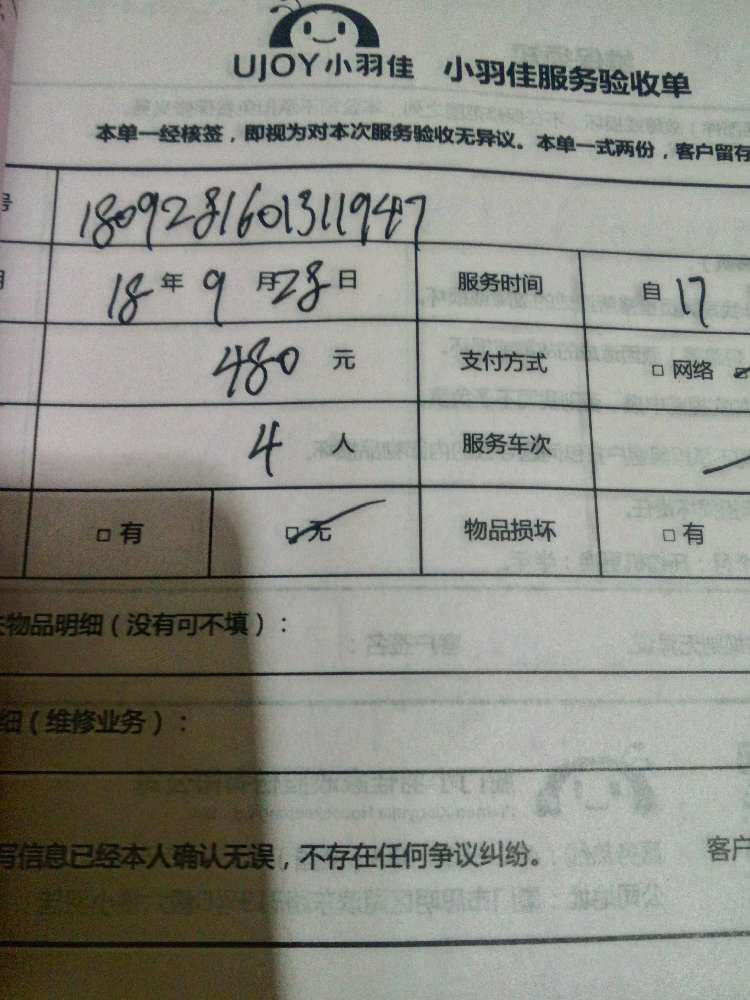 UJOY小羽佳 小羽佳服务验收单
本单一经核签，即视为对本次服务验收无异议。本单一式两份，客户留存
号 1809281601311947
18年9月28日 服务时间 自17
480元 支付方式 □ 网络
4人 服务车次
□ 有 □ 无 物品损坏 □ 有
物品明细（没有可不填）：
细（维修业务）：
写信息已经本人确认无误，不存在任何争议纠纷。 客户